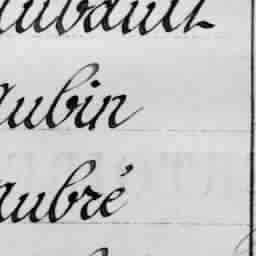 Aubault
Aubin
Aubré